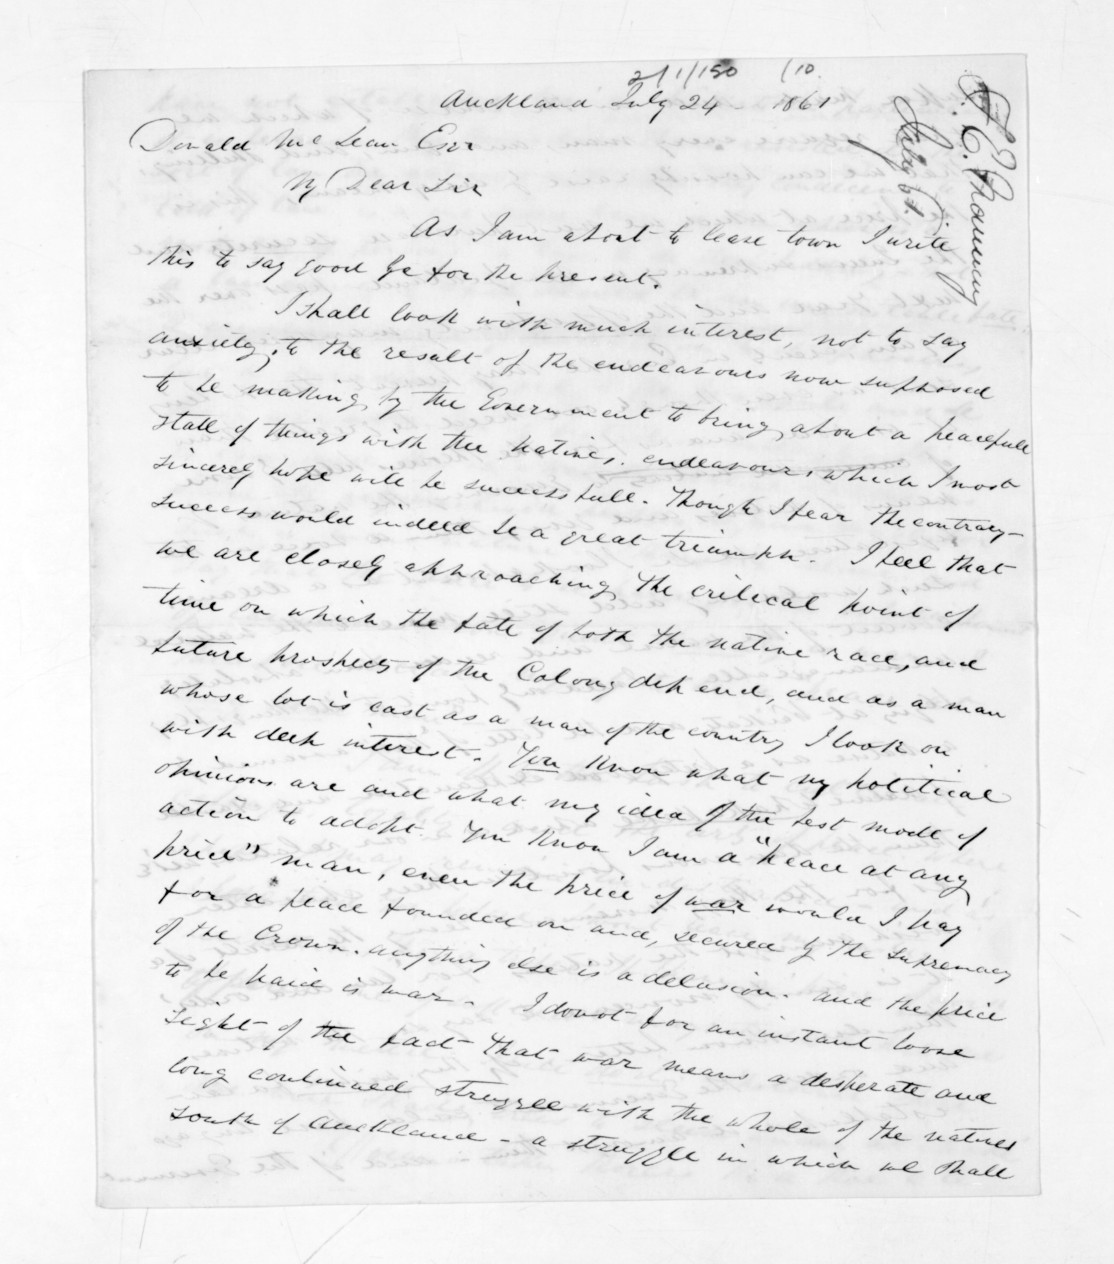 2/1/150 /10.
Auckland July 24 1861
F. E. Maning
July 61.
Donald McLean Esqr
My Dear Sir
As I am about to lease town I write
this to say good by for the present.
I shall look with much interest, not to say
anxiety, to the result of the endeavours now supposed
to be making by the Government to bring about a peacefull
state of things with the natives. endeavours which I most
sincerely hope will be successfull. Though I fear the contrary -
success would indeed be a great triumph. I feel that
we are closely approaching the critical point of
time on which the fate of both the native race, and
future prospects of the Colony depend, and as a man
whose lot is cast as a man of the country I look on
with deep interest. You know what my political
opinions are and what my idea of the best mode of
action to adopt. You know I am a "peace at any
price" man, even the price of war would I pay
for a peace founded on and, secured by the supremacy
of the Crown. anything else is a delusion. and the price
to be paid is war. I do not for an instant loose
sight of the fact that war means a desperate and
long continued struggle with the whole of the natives
south of Auckland - a struggle in which we shall